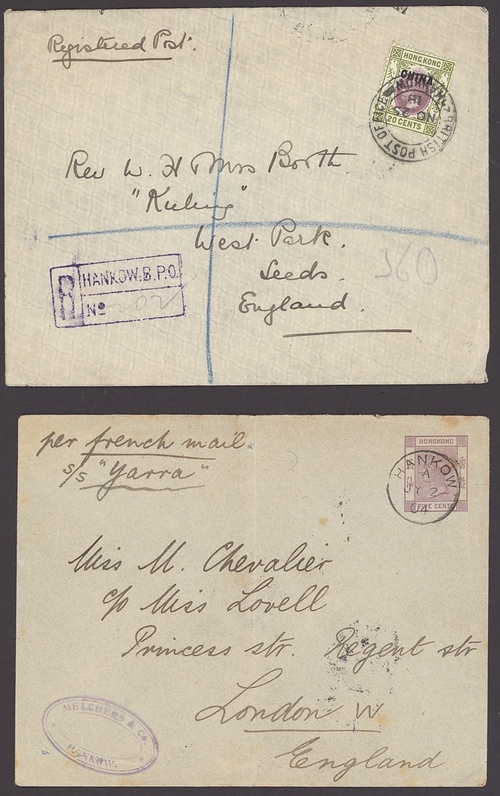 Registered Post.
HONGKONG
CHINA
20 CENTS
BRITISH POST OFFICE
Rev W. H & Mrs Booth.
"Kuling"
West Park.
Leeds.
England.
560
R
HANKOW.B.P.O.
No 202
per french mail.
s/s "Yarra"
HONGKONG
FIVE CENTS
HANKOW
A
JY 2
04
Miss M. Chevalier
c/o Miss Lovell
Princess str. Regent str
London W
England
MELCHERS & Co.
HANKOW.